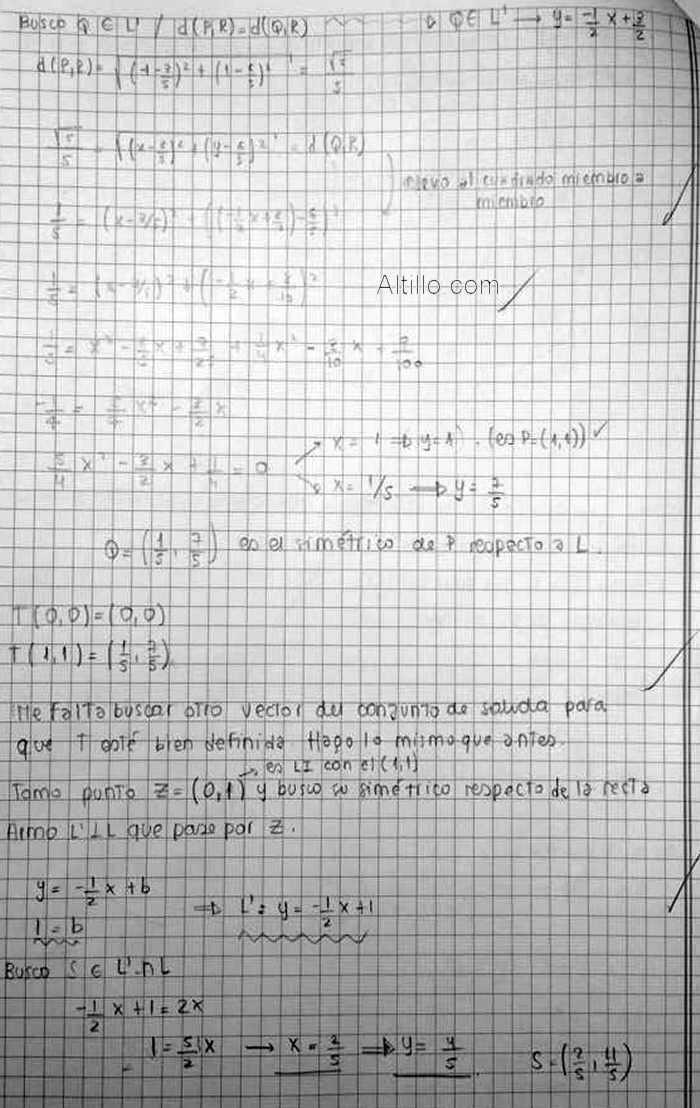 Busco Q ∈ L' / d(P,R) = d(Q,R) → Q ∈ L' → y = -1/2 x + 3/2
d(P,R) = √((1-3/5)² + (1-6/5)²) = √5/5
√5/5 = √((x-3/5)² + (y-6/5)²) = d(Q,R)
elevo al cuadrado miembro a
miembro
1/5 = (x-3/5)² + ((-1/2 x + 3/2) - 6/5)²
1/5 = (x-3/5)² + (-1/2 x + 3/10)²
Altillo com
-1/4 = 5/4 x² - 3/2 x
5/4 x² - 3/2 x + 1/4 = 0
x = 1 ⇒ y = 1 . (es P=(1,1)) ✓
x = 1/5 → y = 7/5
Q = (1/5, 7/5) es el simétrico de P respecto a L.
T(0,0) = (0,0)
T(1,1) = (1/5, 7/5)
Me falta buscar otro vector del conjunto de salida para
que T esté bien definida Hago lo mismo que antes.
→ es LI con el (1,1)
Tomo punto Z = (0,1) y busco su simétrico respecto de la recta
Armo L' ⊥ L que pase por Z.
y = -1/2 x + b
1 = b
⇒ L': y = -1/2 x + 1
Busco S ∈ L' ∩ L
-1/2 x + 1 = 2x
1 = 5/2 x → x = 2/5 ⇒ y = 4/5 . S = (2/5, 4/5)